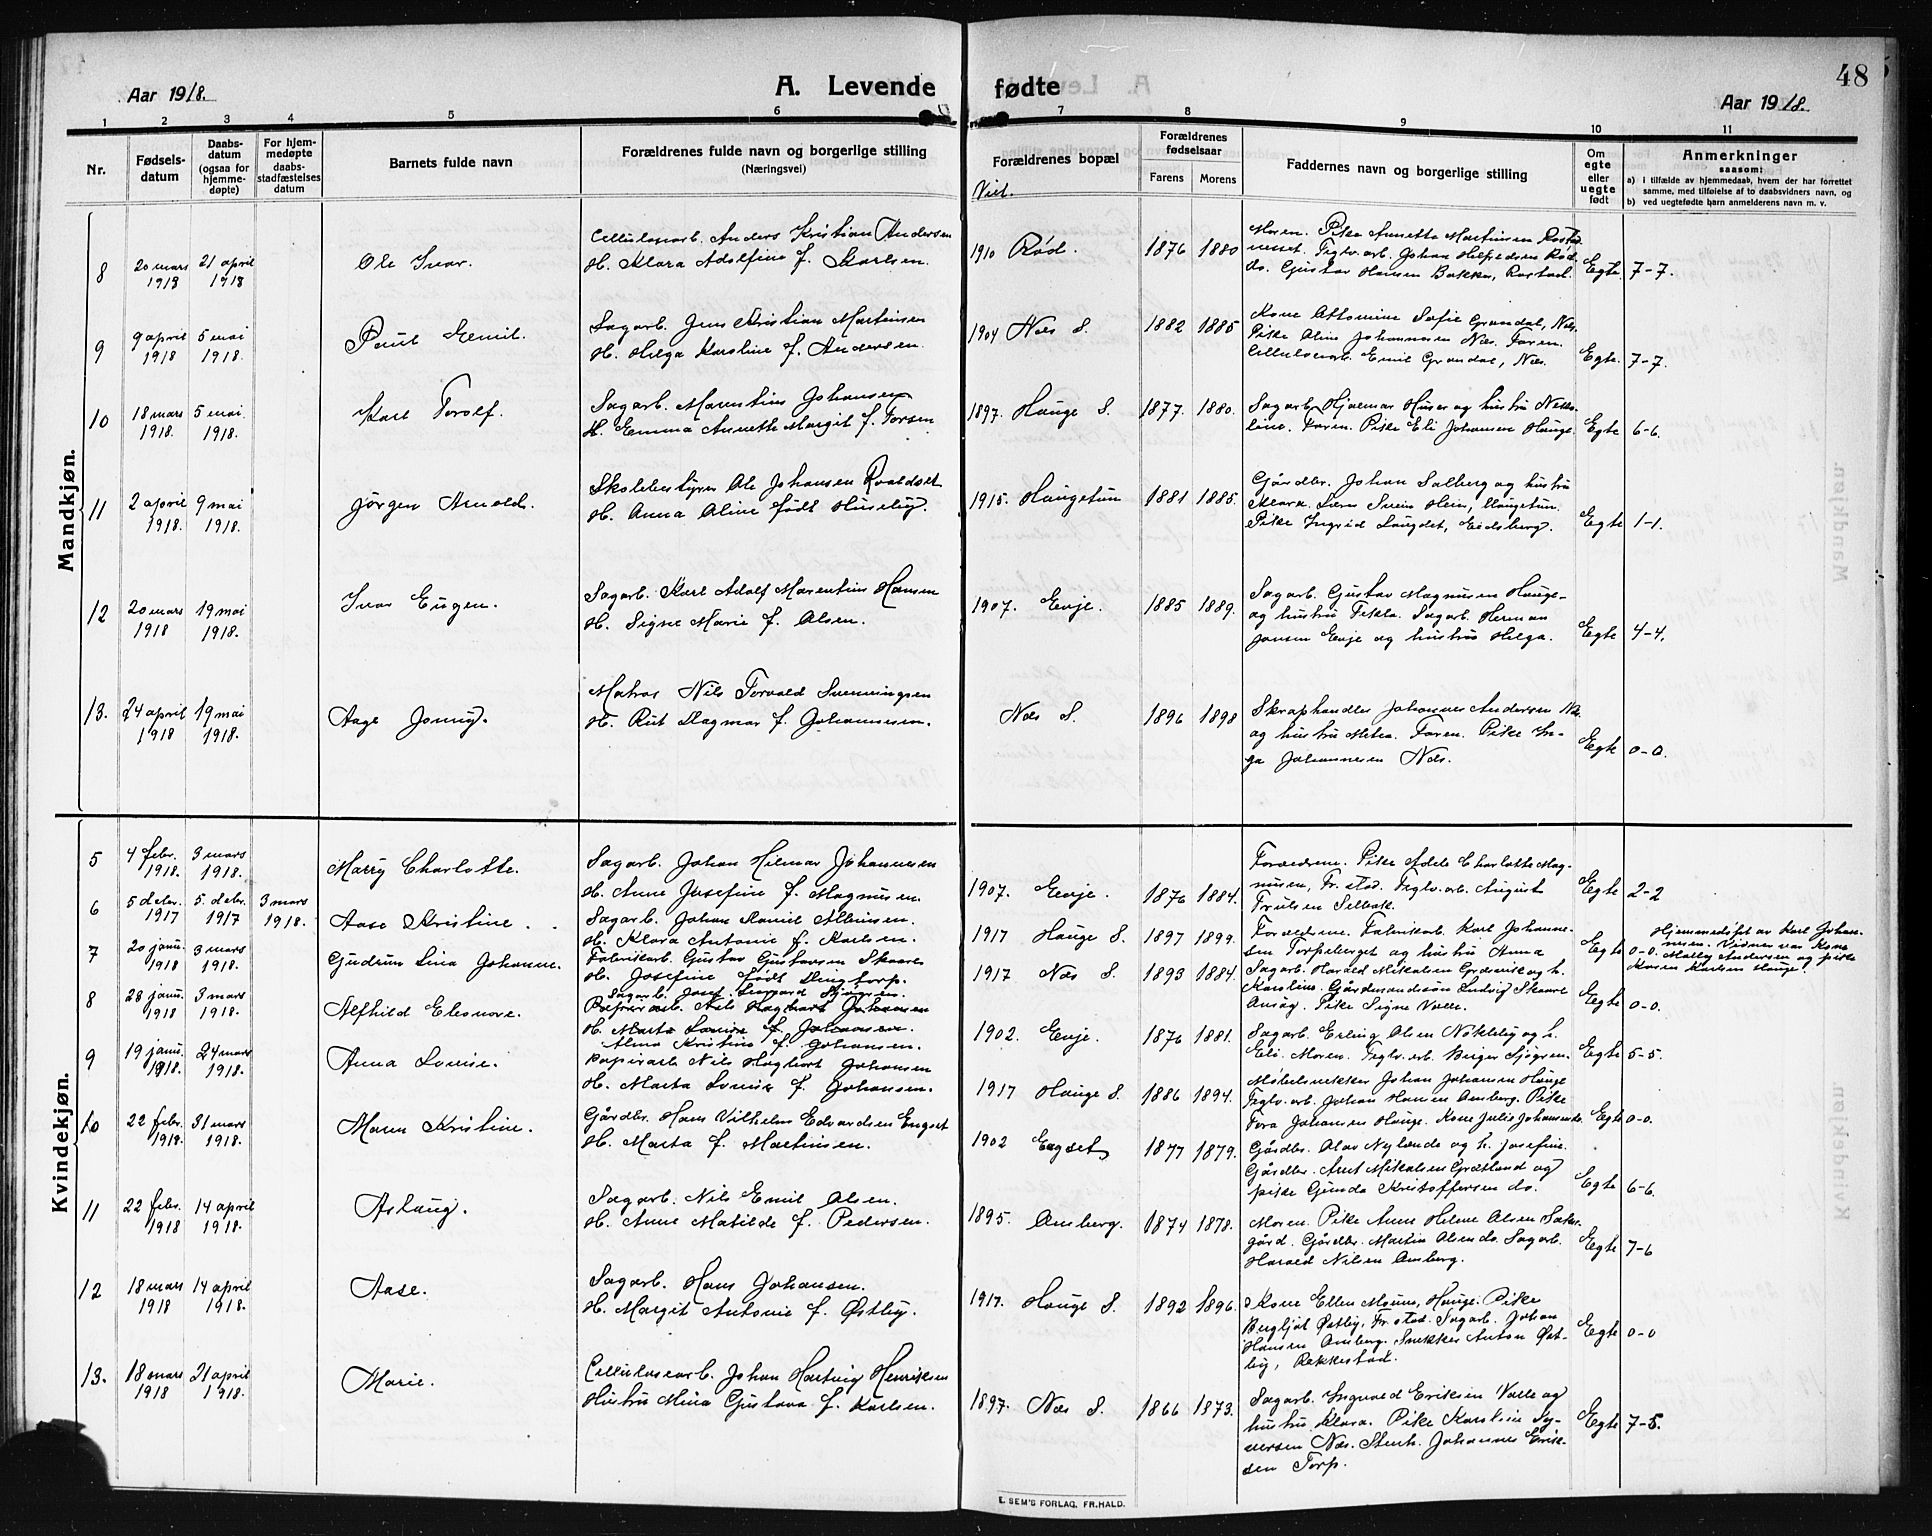 48
Aar 1918. A. Levende fødte Aar 1918.
1 2 3 4 5 6 7 8 9 10 11
Nr. Fødsels-datum Daabs-datum (ogsaa for hjemme-døpte) For hjem-medøpte daabs-stadfæstelses datum Barnets fulde navn Forældrenes fulde navn og borgerlige stilling (Næringsvei) Forældrenes bopæl Forældrenes fødselsaar Farens Morens Faddernes navn og borgerlige stilling Om egte eller uegte født Anmerkninger saasom:
a) i tilfælde av hjemmedaab, hvem der har forrettet samme, med tilføielse af to daabsvidners navn, og
b) ved uegtefødte barn anmelderens navn m. v.
Viet.
Mandkjøn.
8 20 mars 1918 21 april 1918 Ole Ivar. Cellulosearb. Anders Kristian Andersen
H. Klara Adolfine f. Karlsen. 1910 Rød. 1876 1880 Moren. Pike Annette Martinsen
Teglv.arb. Johan Rød.
do. Gustav Hansen Bakke, Rostad. Egte 7-7.
9 9 april 1918 5 mai 1918. Paul Emil. Sagarb. Jens Kristian Martinsen
H. Helga Karoline f. Andersen. 1904 Næs S. 1882 1885 Kone Sofie Grændal, Næs.
Pike Aline Johannesen Næs. Faren.
Cellulosearb. Emil Grændal, Næs. Egte. 7-7.
10 18 mars 1918. 5 mai 1918. Karl Torolf. Sagarb. Marentius Johansen
H. Emma Annette Margit f. Torsen 1897. Hauge S. 1877. 1880. Sagarb. Hjalmar Huser og hustru
Faren. Pike Eli Johansen Hauge. Egte 6-6.
11 2 april 1918. 9 mai 1918. Jørgen Arnold. Skolebestyrer Ole Johansen Roaldset
H. Anna Oline født Huseby. 1915. Haugetun 1881 1885. Gårdbr. Johan Solberg og hustru
Klara. Lærer Svein Heier, Haugetun.
Pike Ingrid Langdet, Eidsberg. Egte 1-1.
12 20 mars 1918 19 mai 1918. Ivar Eugen. Sagarb. Karl Adolf Marentius Hansen
H. Signe Marie f. Olsen. 1907. Evje. 1885 1889. Sagarb. Gustav Magnussen Hauge
og hustru Tekla. Sagarb. Herman
Jansen Evje og hustru Helga. Egte 4-4.
13. 24 april 1918 19 mai 1918. Aage Jonny. Matros Nils Torvald Svenningsen
H. Rut Dagmar f. Johannesen. Næs S. 1896 1898 Skraphandler Johannes Andersen Næs
og hustru Metea. Faren. Pike In-
ga Johannesen Næs. Egte 0-0.
Kvindekjøn.
5 4 febr. 1918. 3 mars 1918. Marry Charlotte. Sagarb. Johan Hilmar Johannesen
H. Anne Josefine f. Magnusen. 1907. Evje. 1876 1884. Forældrene. Pike Adele Charlotte Mag-
nusen, Fr.stad. Teglv.arb. August
Trulsen Selbak. Egte 2-2
6 5 debr. 1917 5. debr. 1917 3 mars 1918. Aase Kristine. Sagarb. Johan Daniel Albinsen.
H. Klara Antonie f. Karlsen. 1917 Hauge S. 1897 1899. Forældrene. Fabrikarb. Karl Johanne-
sen Torpeberget og hustru Anna Egte 0-0. Hjemmedøpt av Karl Johan-
nesen. Vidner var Kone
Molly Andersen og pike
Karen Karlsen Hauge.
7 20 janu. 1918 3 mars 1918. Gudrun Lina Johanne. Fabrikarb. Gustav Gustavsen Skaare
H. Josefine født Dingtorp. 1917 Næs S. 1893 1884. Sagarb. Harald Mikalsen Grøsvik og h.
Karoline. Gårdmandssøn Ludvig Skaare
Onsøy. Pike Signe Valle. Egte 0-0.
8 28 janu. 1918 3 mars 1918. Alfhild Eleonore. Sagarb. Josef
Papirarb. Nils Hagbart Johansen
H. Marta Louise f. Johansen.
Alma Kristine f. Johansen. 1902. Evje. 1876 1881. Sagarb. Erling Olsen Nøkleby og h.
Eli. Moren. Teglv.arb. Birger Sjøgren. Egte 5-5.
9 19 janu. 1918. 24 mars 1918. Anna Louise. Papirarb. Nils Hagbart Johansen
H. Marta Louise f. Johansen. 1917 Hauge S. 1886 1894. Møbelsnekker Johan Johansen Hauge
Teglv.arb. Johan Hansen Amberg. Pike
Tora Johansen Hauge. Kone Julie Johannesen Egte 0-0.
10 22 febr. 1918. 31 mars 1918. Maren Kristine. Gårdbr. Hans Vilhelm Edvardsen Engset
H. Marta f. Martinsen. 1902 Engset 1877 1879. Gårdbr. Olav Nylende og h. Josefine.
Gårdbr. Anut Mikalsen Grøtland og
pike Gunda Kristoffersen do. Egte 6-6.
11 22 febr. 1918 14 april 1918. Aslaug. Sagarb. Nils Emil Olsen.
H. Anne Matilde f. Pedersen. 1895. Amberg. 1874 1878. Moren. Pike Anne Helene Olsen
gård. Gårdbr. Martin Olsen do. Sagarb.
Harald Nilsen Amberg. Egte 7-6
12 18 mars 1918 14 april 1918. Aase. Sagarb. Hans Johansen.
H. Margit Antonie f. Østby. 1917. Hauge S. 1892 1896. Kone Ellen Moum, Hauge. Pike
Bergljot Østby, Fr.stad. Sagarb. Johan
Hansen Amberg. Snekker Anton Øst-
by, Rakkestad. Egte 0-0
13. 18 mars 1918 21 april 1918. Marie. Cellulosearb. Johan Hartvig Henriksen
Hustru Mina Gustava f. Karlsen. 1897. Næs S. 1866 1873. Sagarb. Ingvald Eriksen Valle og
hustru Klara. Pike Karoline Sy-
versen Næs. Stenh. Johannes Erik-
sen Torp. Egte 7-5.
E. SEM'S FORLAG, FR.HALD.